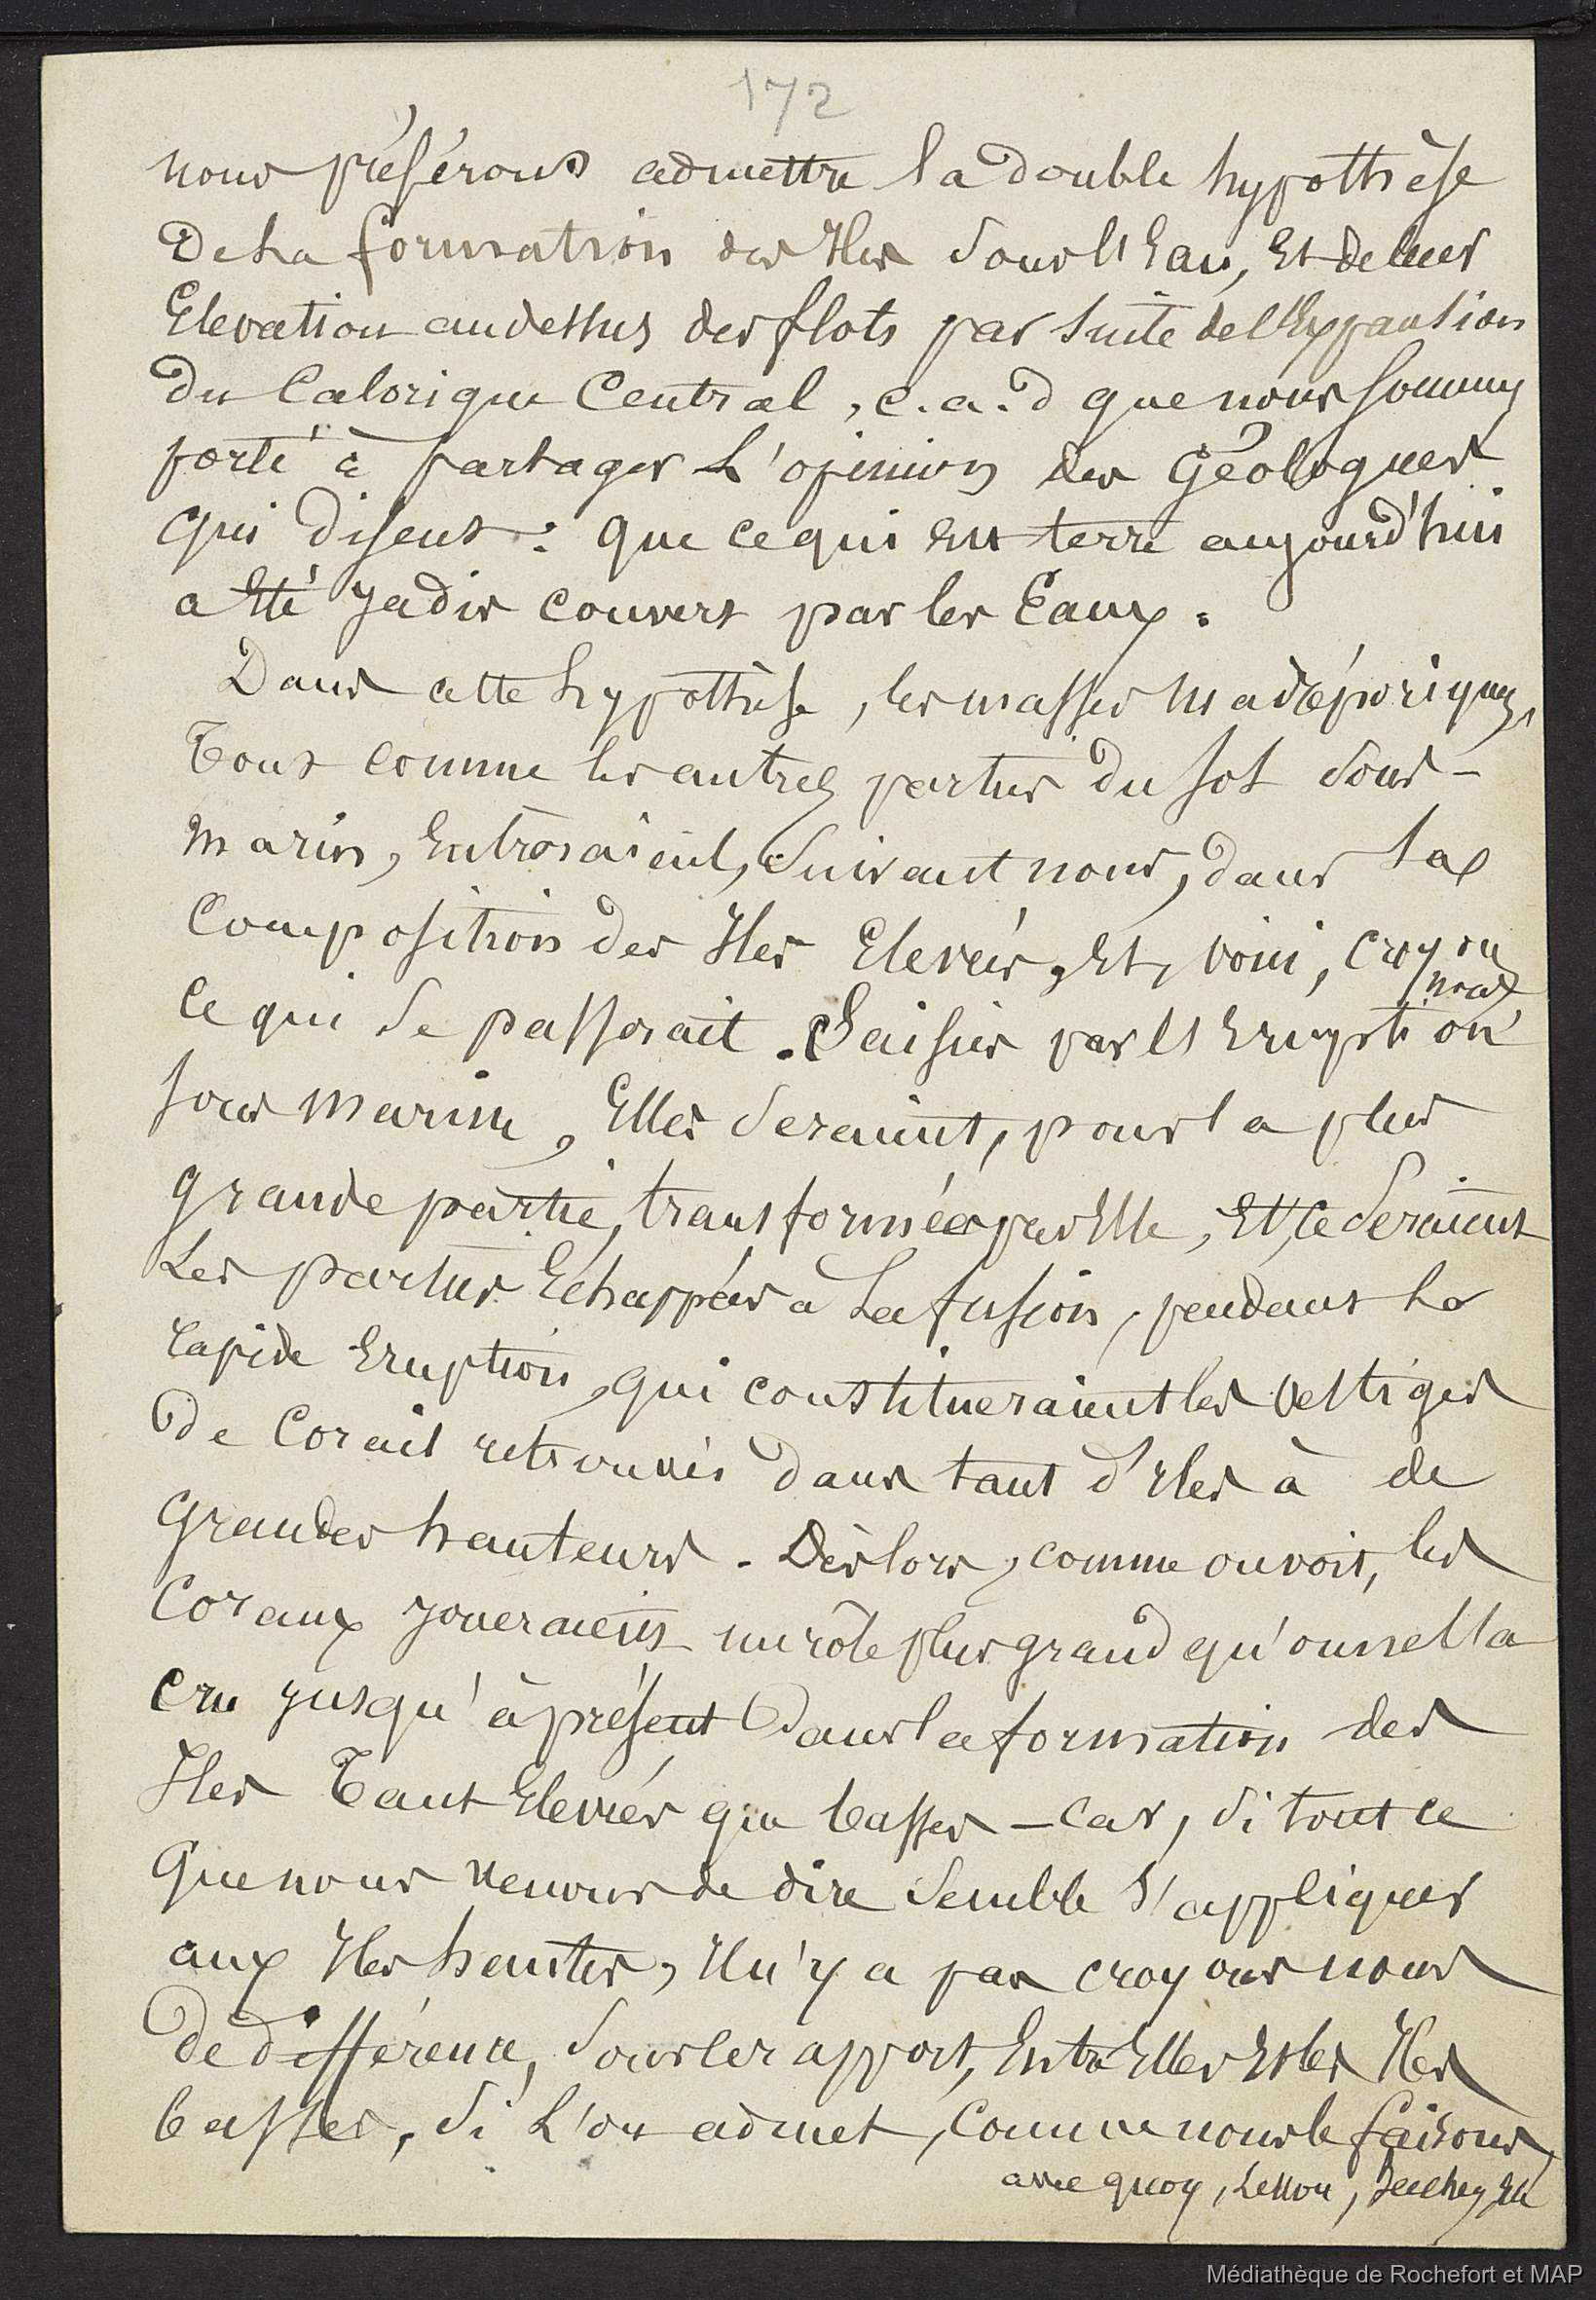 172
nous préférons admettre la double hypothèse
de la formation des Iles sous l'Eau, Et de leur
Elevation au dessus des flots par suite de l'Expansion
du Calorique Central, c.a.d que nous sommes
porté à partager L'opinion des Géologues
qui disent : que ce qui est terre aujourd'hui
a Eté jadis couvert par les Eaux.
Dans cette hypothèse, les masses Madréporiques,
Tout comme les autres parties du sol sous-
marin, Entreraient, suivant nous, dans la
Composition des Iles Elevées, Et, voici, croyons
nous
ce qui se passerait. Saisies par l'Eruption
sous marine, Elles seraient, pour la plus
grande partie, transformées par Elle, Et, ce seraient
Les parties Echappées à La fusion, pendant la
rapide Eruption, qui constitueraient les vestiges
de Corail retrouvés dans tant d'Iles à de
Grandes hauteurs. Dès lors, comme on voit, les
Coraux joueraient un rôle plus grand qu'on ne l'a
cru jusqu'à présent dans la formation des
Iles Tant Elevées que basses – car, si tout ce
que nous venons de dire semble s'appliquer
aux Iles hautes, Il n'y a pas croyons nous
de différence, sous le rapport, Entre Elles Et les Iles
basses, si L'on admet, comme nous le faisons,
avec Quoy, Lesson, Beechey, Etc
Médiathèque de Rochefort et MAP